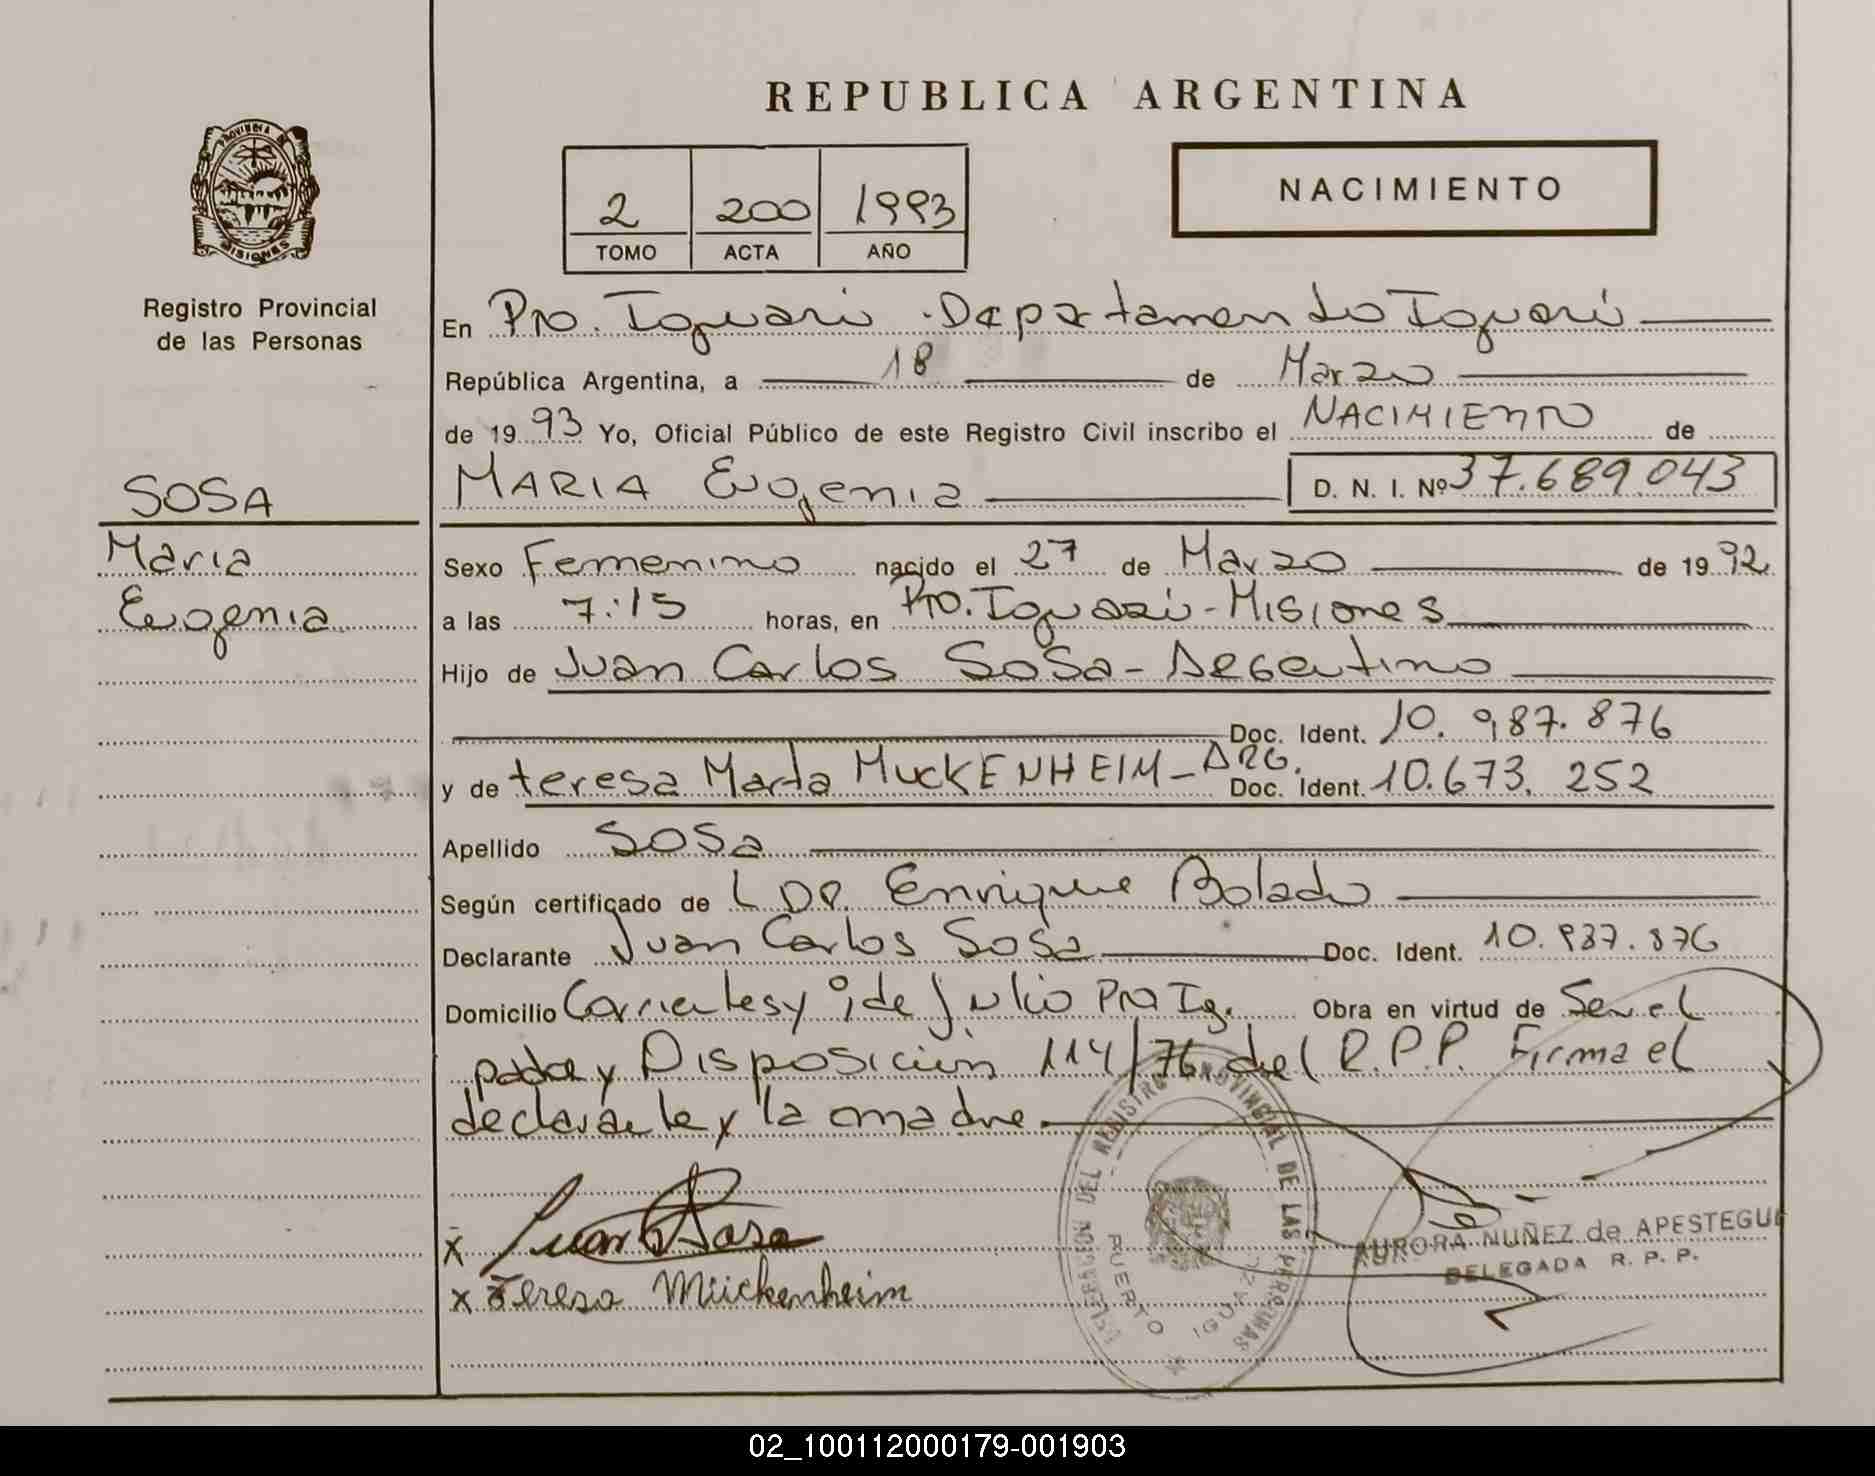 REPUBLICA ARGENTINA
PROVINCIA DE
MISIONES
Registro Provincial
de las Personas
2 200 1993
TOMO ACTA AÑO
NACIMIENTO
En Pto. Iguazú - Departamento Iguazú
República Argentina, a 18 de Marzo
de 1993 Yo, Oficial Público de este Registro Civil inscribo el NACIMIENTO de
MARIA Eugenia D. N. I. Nº 37.689.043
SOSA
Maria
Eugenia
Sexo Femenino nacido el 27 de Marzo de 1992
a las 7:15 horas, en Pto. Iguazú - Misiones
Hijo de Juan Carlos SoSa - Argentino
Doc. Ident. 10.987.876
y de teresa Marta MuckENHEIM - ARG. Doc. Ident. 10.673.252
Apellido SOSa
Según certificado de L DR. Enrique Bolado
Declarante Juan Carlos Sosa Doc. Ident. 10.987.876
Domicilio Corrientes y 9 de Julio Pto Ig. Obra en virtud de Ser el
padre y Disposición 114/76 del R.P.P. Firma el
declarante y la madre
x Juan C Sosa
x Teresa Mückenheim
DELEGACION DEL REGISTRO PROVINCIAL DE LAS PERSONAS
PUERTO IGUAZU
AURORA NUÑEZ de APESTEGUI
DELEGADA R. P. P.
02_100112000179-001903